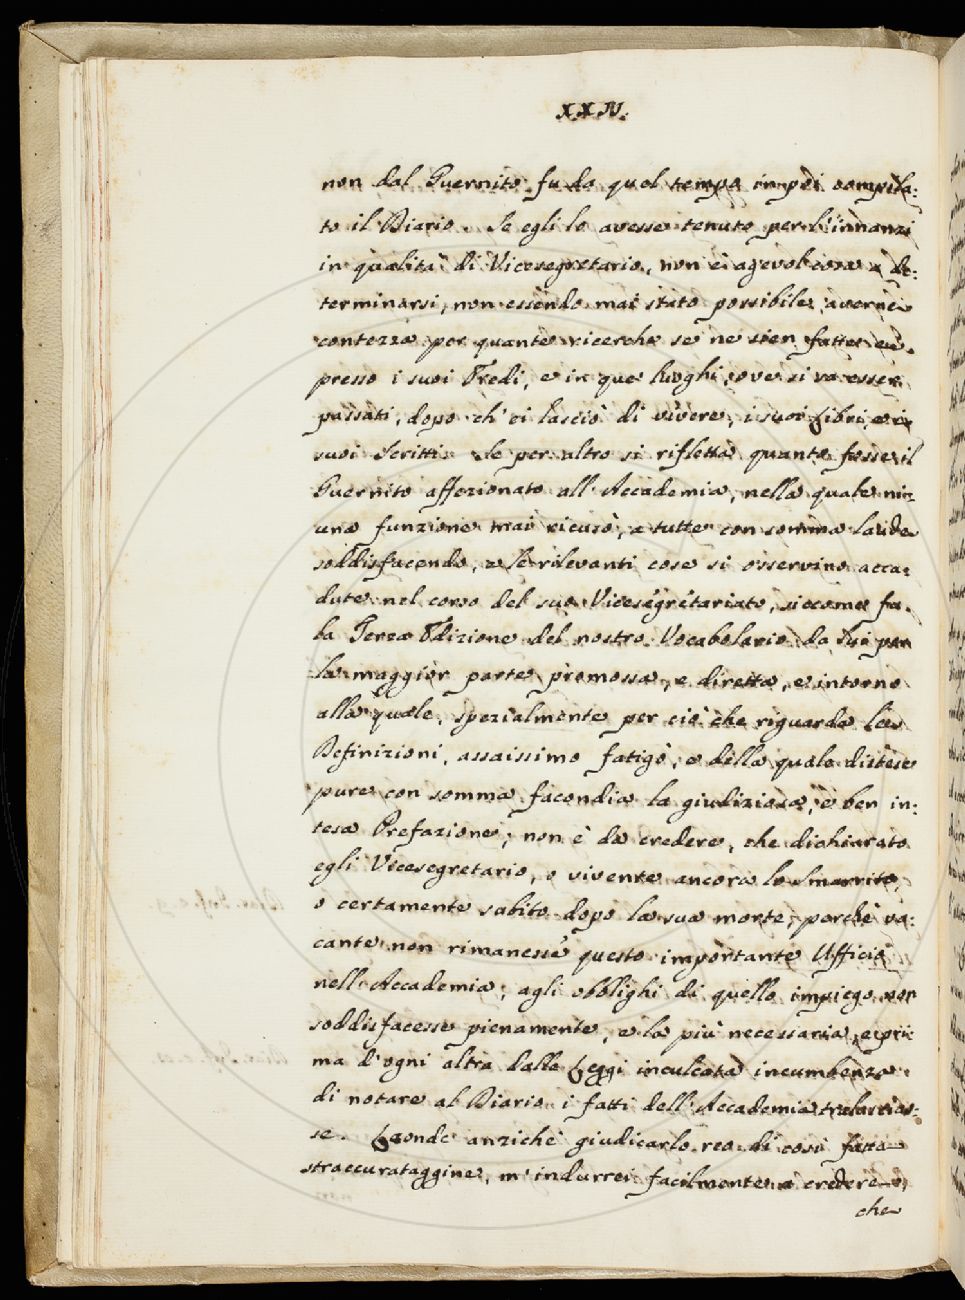 XXIV.
non dal Guernito fu da quel tempo in poi compila:
to il Diario. Se egli lo avesse tenuto per l'innanzi
in qualità di Vicesegretario, non è agevol cosa a de:
terminarsi, non essendo mai stato possibile averne
contezza per quante ricerche se ne sien fatte ap.
presso i suoi Eredi, e in que' luoghi, ove si va esser
passati, dopo ch' ei lasciò di vivere, i suoi Libri, e i
suoi Scritti. Se per altro si rifletta quanto fosse il
Guernito affezionato all'Accademia, nella quale niu:
una funzione mai ricusò, a tutte con somma laude
soddisfacendo, e le rilevanti cose si osservino acca:
dute nel corso del suo Vicesegretariato, siccome fu
la Terza Edizione del nostro Vocabolario da lui per
la maggior parte promossa, e diretta, e intorno
alla quale, spezialmente per ciò che riguarda le
Definizioni, assaissimo fatigò, e della quale distese
pure con somma facondia la giudiziosa, e ben in:
tesa Prefazione; non è da credere, che dichiarato
egli Vicesegretario, o vivente ancora lo Smarrito,
o certamente subito dopo la sua morte, perchè va:
cante non rimanesse questo importante Ufficio
nell'Accademia, agli obblighi di quello impiego non
soddisfacesse pienamente, e la più necessaria, e pri:
ma d'ogni altra dalle Leggi inculcata incumbenza
di notare al Diario i fatti dell'Accademia tralascias:
se. Laonde anzichè giudicarlo reo di così fatta
straccurataggine, m'indurrei facilmente a credere,
che